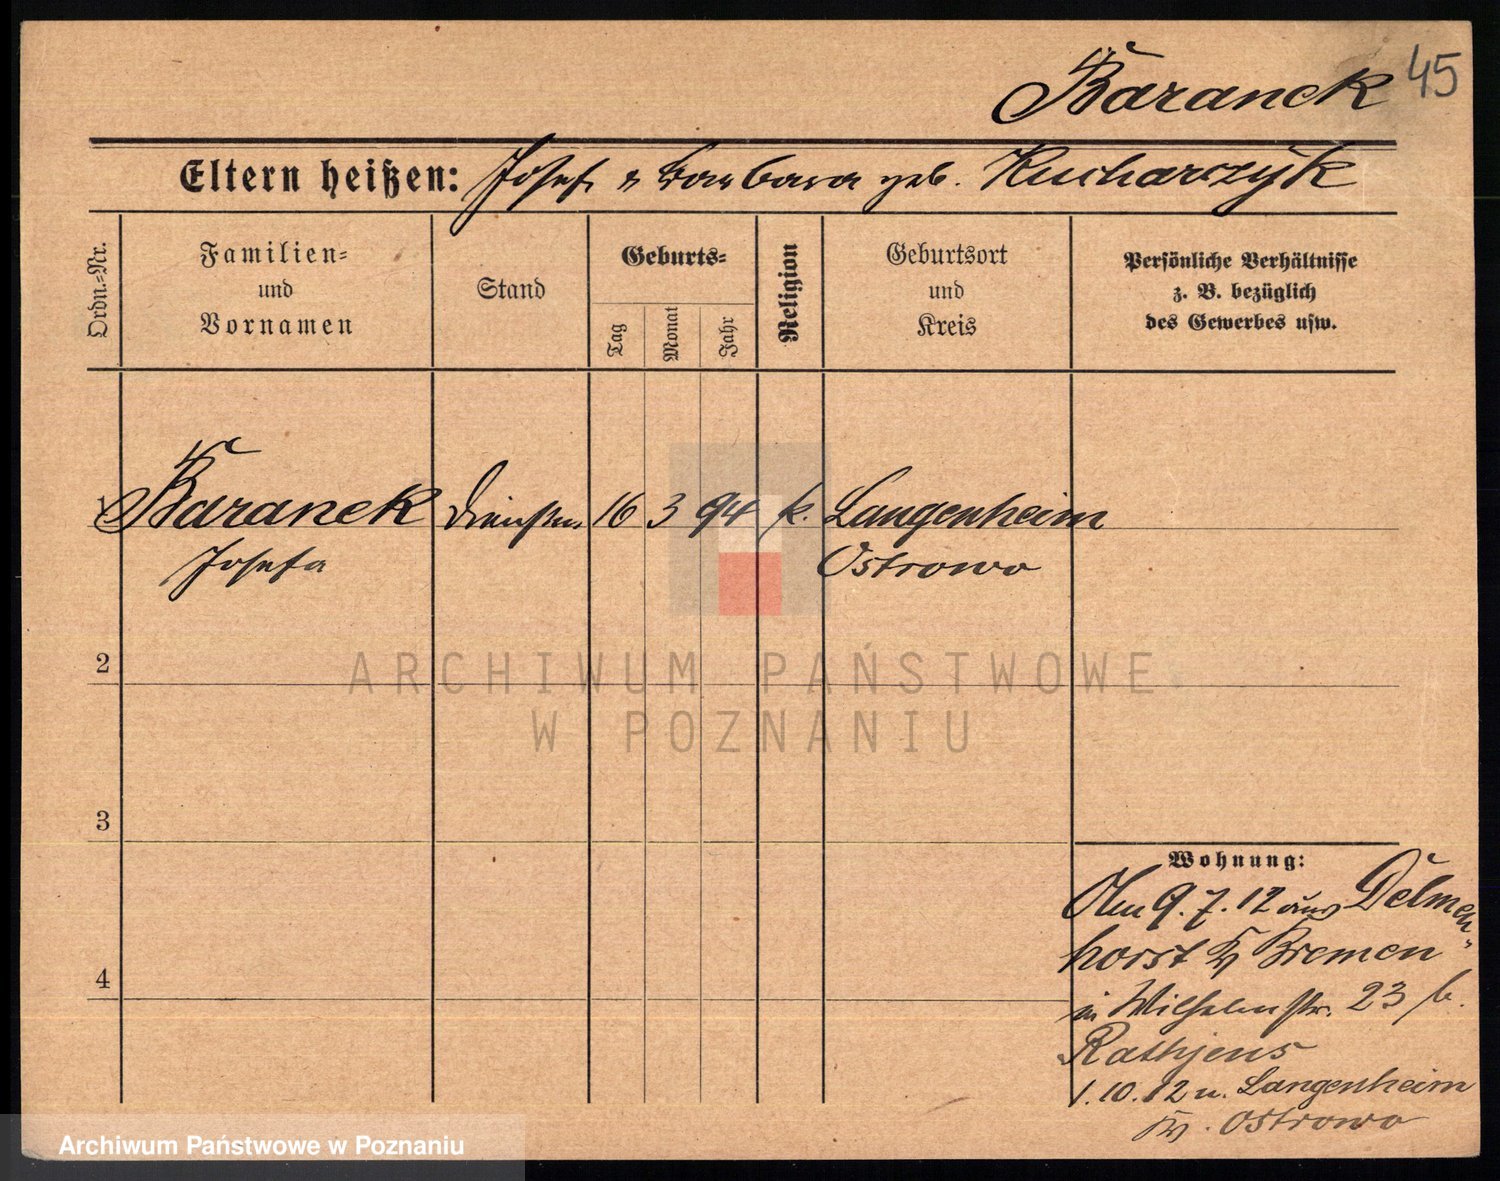 Baranek 45
Eltern heißen: Josef u Barbara geb. Kucharczyk
Ordn.-Nr.
Familien-
und
Vornamen
Stand
Geburts-
Tag
Monat
Jahr
Religion
Geburtsort
und
Kreis
Persönliche Verhältnisse
z. B. bezüglich
des Gewerbes usw.
1 Baranek 16 3 94 k. Langenheim
Josefa Ostrowo
2
3
4
Wohnung:
9.7.12 aus Delmen-
horst Kr Bremen
in Wilhelmstr. 23 b.
Rathjens
1.10.12 n. Langenheim
Kr. Ostrowo
ARCHIWUM PAŃSTWOWE
W POZNANIU
Archiwum Państwowe w Poznaniu